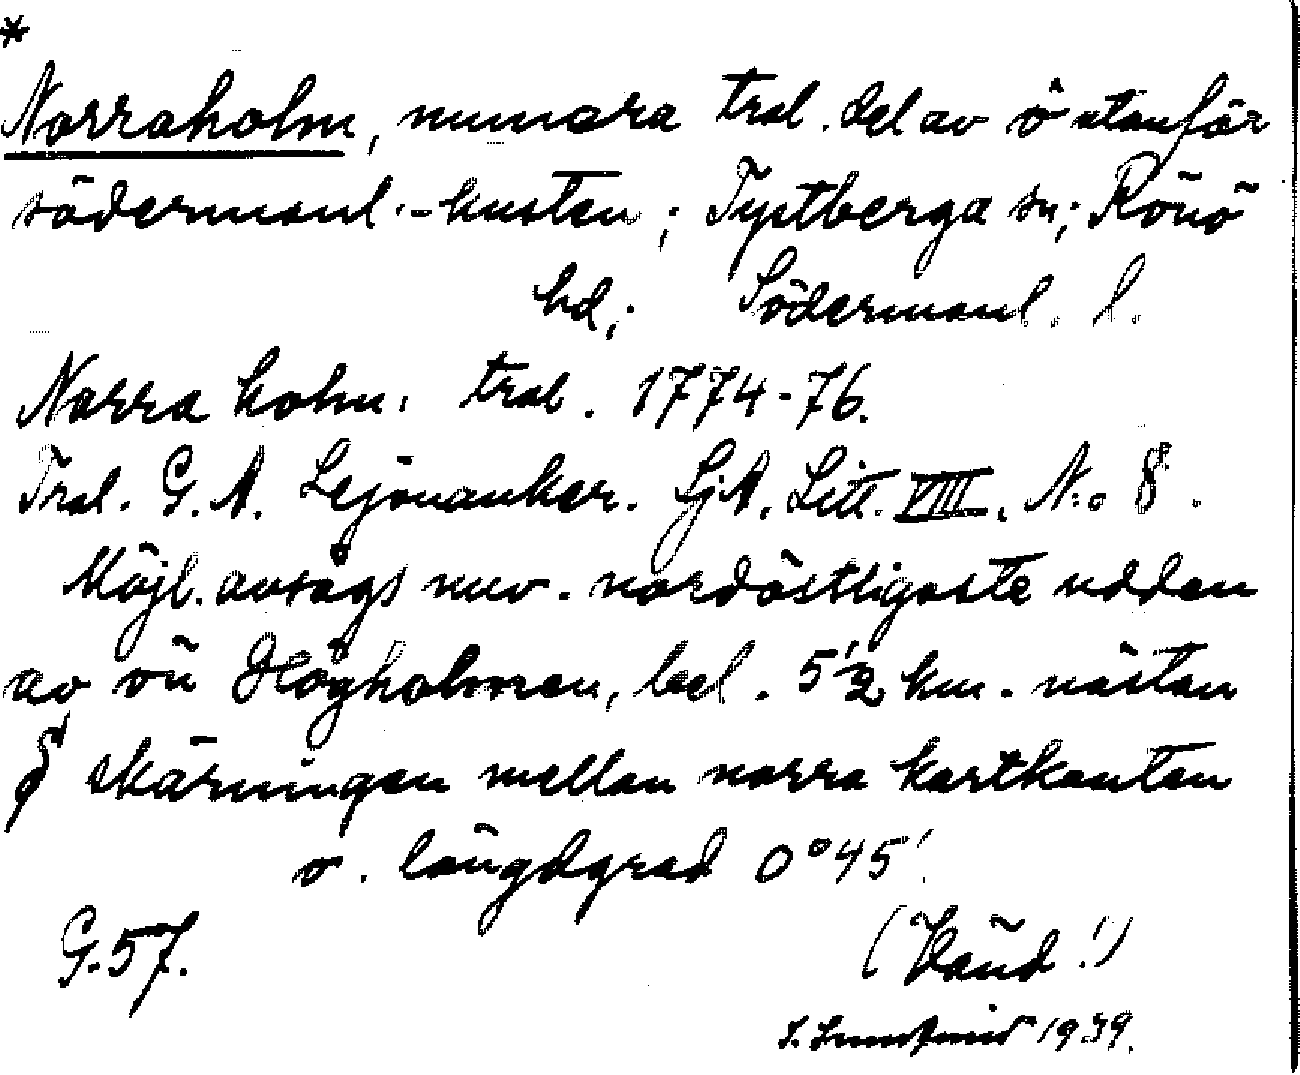 *
Norraholm, numera trol. del av ö utanför
södermanl.-kusten; Tystberga sn; Rönö
hd; Södermanl. l.
Norra holm. trol. 1774-76.
Trol. G. A. Lejonanker. SjA. Litt. VIII. N:o 8.
Möjl. avsågs nuv. nordöstligaste udden
av ön Högholmen, bel. 5 1/2 km. nästan
skärningen mellan norra kartkanten
o. längdgrad 0°45'.
G.57. (Vänd!)
1939.